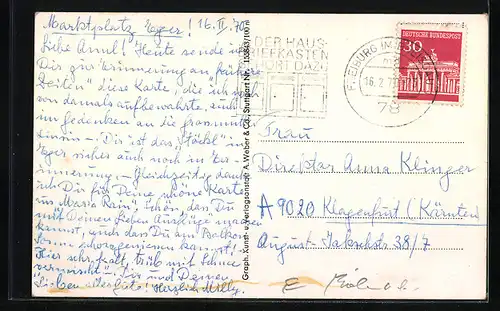 Marktplatz, Eger! 16. II. 70
Liebe Annl! Heute sende ich
Dir zur Erinnerung an "frühere
Zeiten" diese Karte, die ich noch
von damals aufbewahrte, auch
im gedenken an die
Dir ist das "Stöckl" in
Eger sicher auch noch in Er-
innerung. – Gleichzeitig dank
ich Dir für Deine schöne Karte
aus Maria Rain! Schön, daß Du
mit Deinen lieben Ausflüge machen
kannst, auch daß Du am Balkon
Sonne genießen kannst! –
Hier sehr kalt, trüb mit Schnee
vermischt – Dir und Deinen
Lieben alles Gute! Herzlich Milly.
Graph. Kunst- u. Verlagsanstalt A. Weber & Co., Stuttgart Nr.
DER HAUS-
BRIEFKASTEN
GEHÖRT DAZU
FREIBURG IM
16.2.70
78
DEUTSCHE BUNDESPOST
30
Frau
Direktor Anna Klinger
A 9020 Klagenfurt (Kärnten)
August 38/7